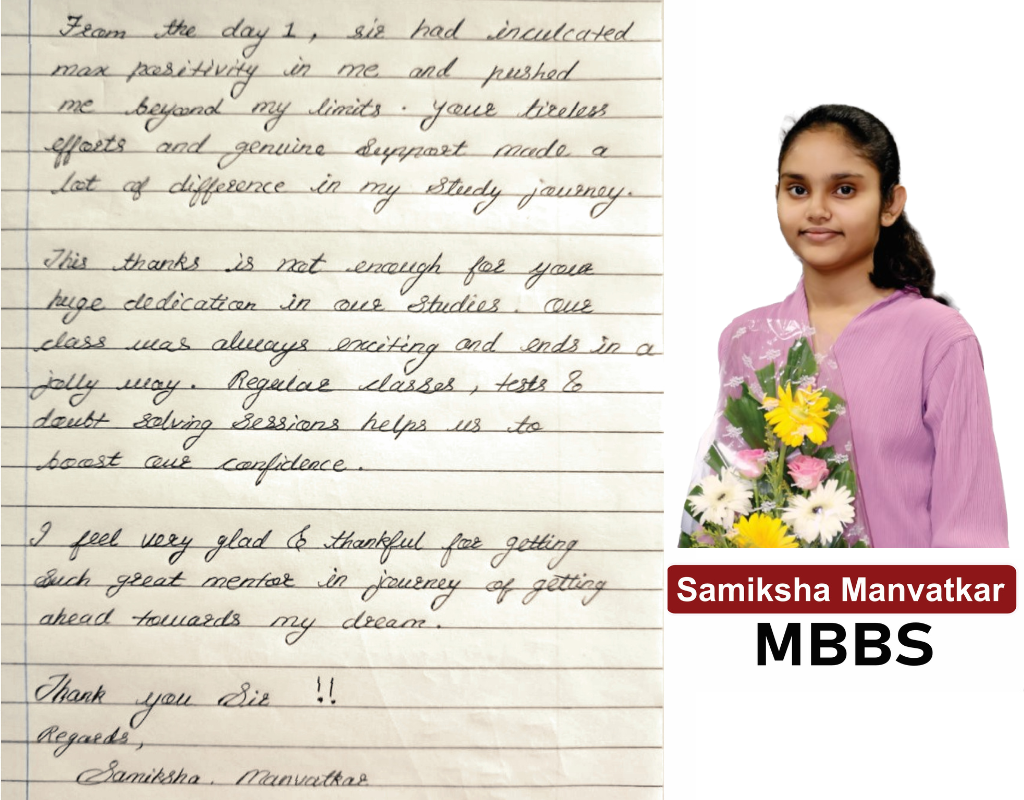 From the day 1, sir had inculcated
max positivity in me and pushed
me beyond my limits. Your tireless
efforts and genuine support made a
lot of difference in my study journey.
This thanks is not enough for your
huge dedication in our studies. Our
class was always exciting and ends in a
jolly way. Regular classes, tests &
doubt solving sessions helps us to
boost our confidence.
I feel very glad & thankful for getting
such great mentor in journey of getting
ahead towards my dream.
Thank you Sir !!
Regards,
Samiksha. Manvatkar
Samiksha Manvatkar
MBBS